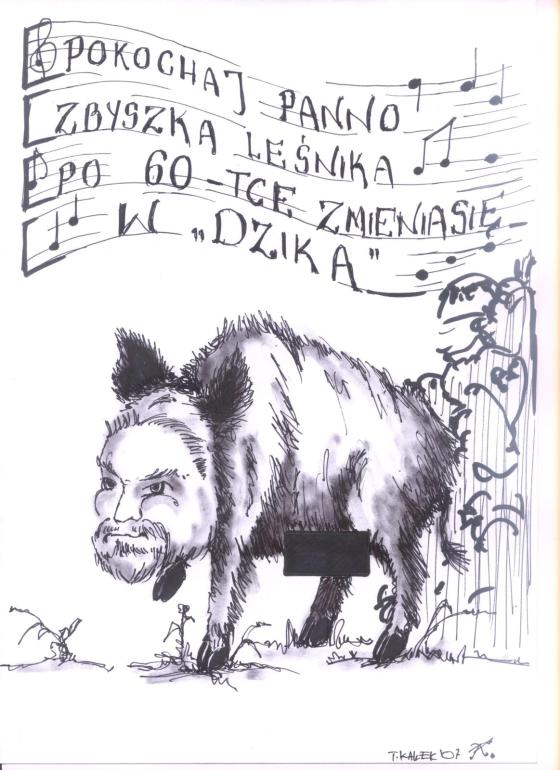 POKOCHAJ PANNO
ZBYSZKA LEŚNIKA
PO 60-TCE ZMIENIASIĘ
W „DZIKA”
T. KAŁEK '07